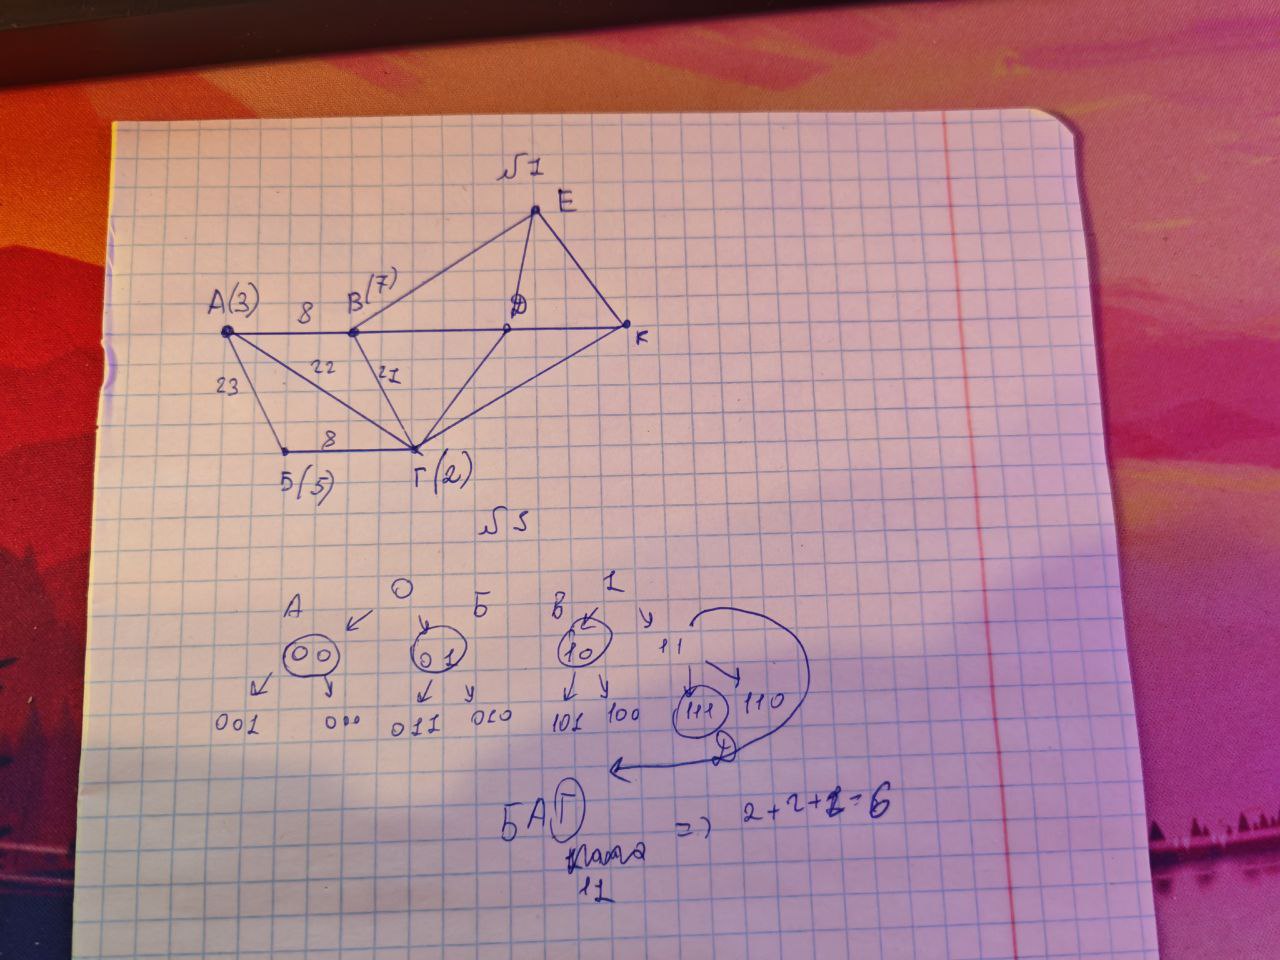 №1
E
А(3) 8 В(7) Д
К
23 22 21
8
Б(5) Г(2)
№5
А 0 Б В 1
00 01 10 11
001 000 011 010 101 100 111 110
Д
БАГ => 2+2+2=6
11